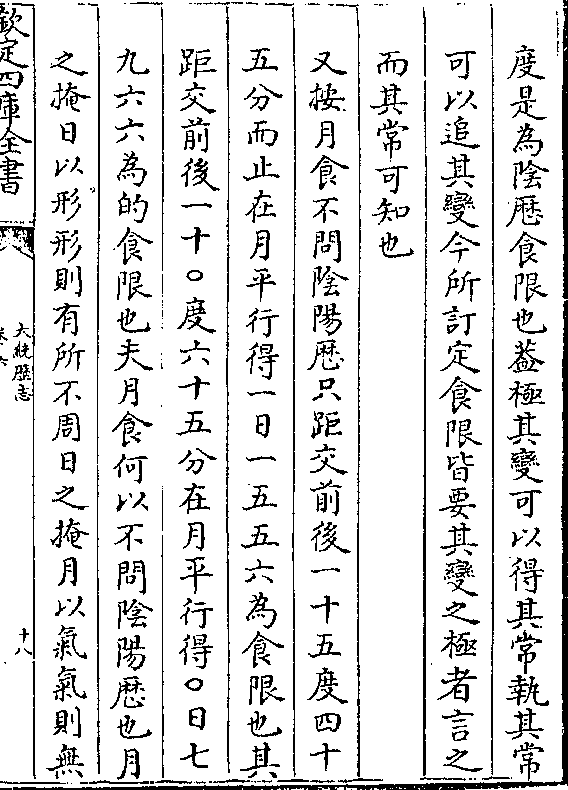 度是為陰厯食限也葢極其變可以得其常執其常
可以追其變今所訂定食限皆要其變之極者言之
而其常可知也
又按月食不問陰陽厯只距交前後一十五度四十
五分而止在月平行得一日一五五六為食限也其
距交前後一十○度六十五分在月平行得○日七
九六六為的食限也夫月食何以不問陰陽厯也月
之掩日以形形則有所不周日之掩月以氣氣則無
欽定四庫全書
大統厯志
卷六
十八